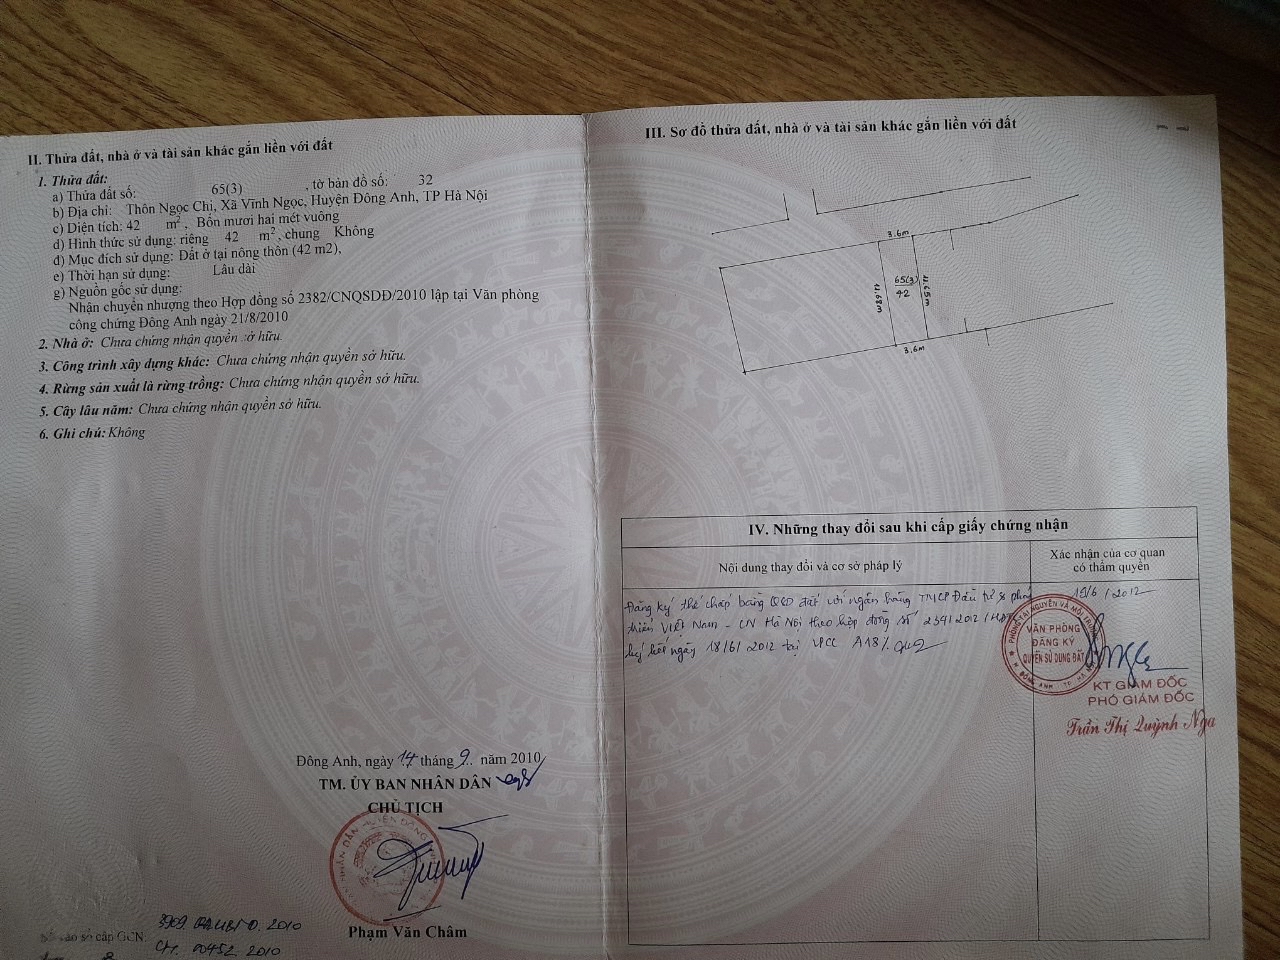 II. Thửa đất, nhà ở và tài sản khác gắn liền với đất
1. Thửa đất:
a) Thửa đất số: 65(3) , tờ bản đồ số: 32
b) Địa chỉ: Thôn Ngọc Chi, Xã Vĩnh Ngọc, Huyện Đông Anh, TP Hà Nội
c) Diện tích: 42 m², Bốn mươi hai mét vuông
d) Hình thức sử dụng: riêng 42 m², chung Không
đ) Mục đích sử dụng: Đất ở tại nông thôn (42 m2),
e) Thời hạn sử dụng: Lâu dài
g) Nguồn gốc sử dụng:
Nhận chuyển nhượng theo Hợp đồng số 2382/CNQSDĐ/2010 lập tại Văn phòng
công chứng Đông Anh ngày 21/8/2010
2. Nhà ở: Chưa chứng nhận quyền sở hữu.
3. Công trình xây dựng khác: Chưa chứng nhận quyền sở hữu.
4. Rừng sản xuất là rừng trồng: Chưa chứng nhận quyền sở hữu.
5. Cây lâu năm: Chưa chứng nhận quyền sở hữu.
6. Ghi chú: Không
Đông Anh, ngày 14 tháng 9. năm 2010
TM. ỦY BAN NHÂN DÂN
CHỦ TỊCH
Phạm Văn Châm
số cấp GCN: 3969 2010
CH. 00452 2010
III. Sơ đồ thửa đất, nhà ở và tài sản khác gắn liền với đất
3.6m
65(3)
42
3.6m
IV. Những thay đổi sau khi cấp giấy chứng nhận
Nội dung thay đổi và cơ sở pháp lý
Xác nhận của cơ quan
có thẩm quyền
Đăng ký thế chấp bằng QSD đất với ngân hàng TMCP Đầu tư & phát
triển Việt Nam - CN Hà Nội theo hợp đồng số 234/2012/HĐ
ký kết ngày 18/6/2012 tại VPCC A18
19/6/2012
PHÒNG TÀI NGUYÊN VÀ MÔI TRƯỜNG
VĂN PHÒNG
ĐĂNG KÝ
QUYỀN SỬ DỤNG ĐẤT
H. ĐÔNG ANH - TP. HÀ NỘI
KT GIÁM ĐỐC
PHÓ GIÁM ĐỐC
Trần Thị Quỳnh Nga